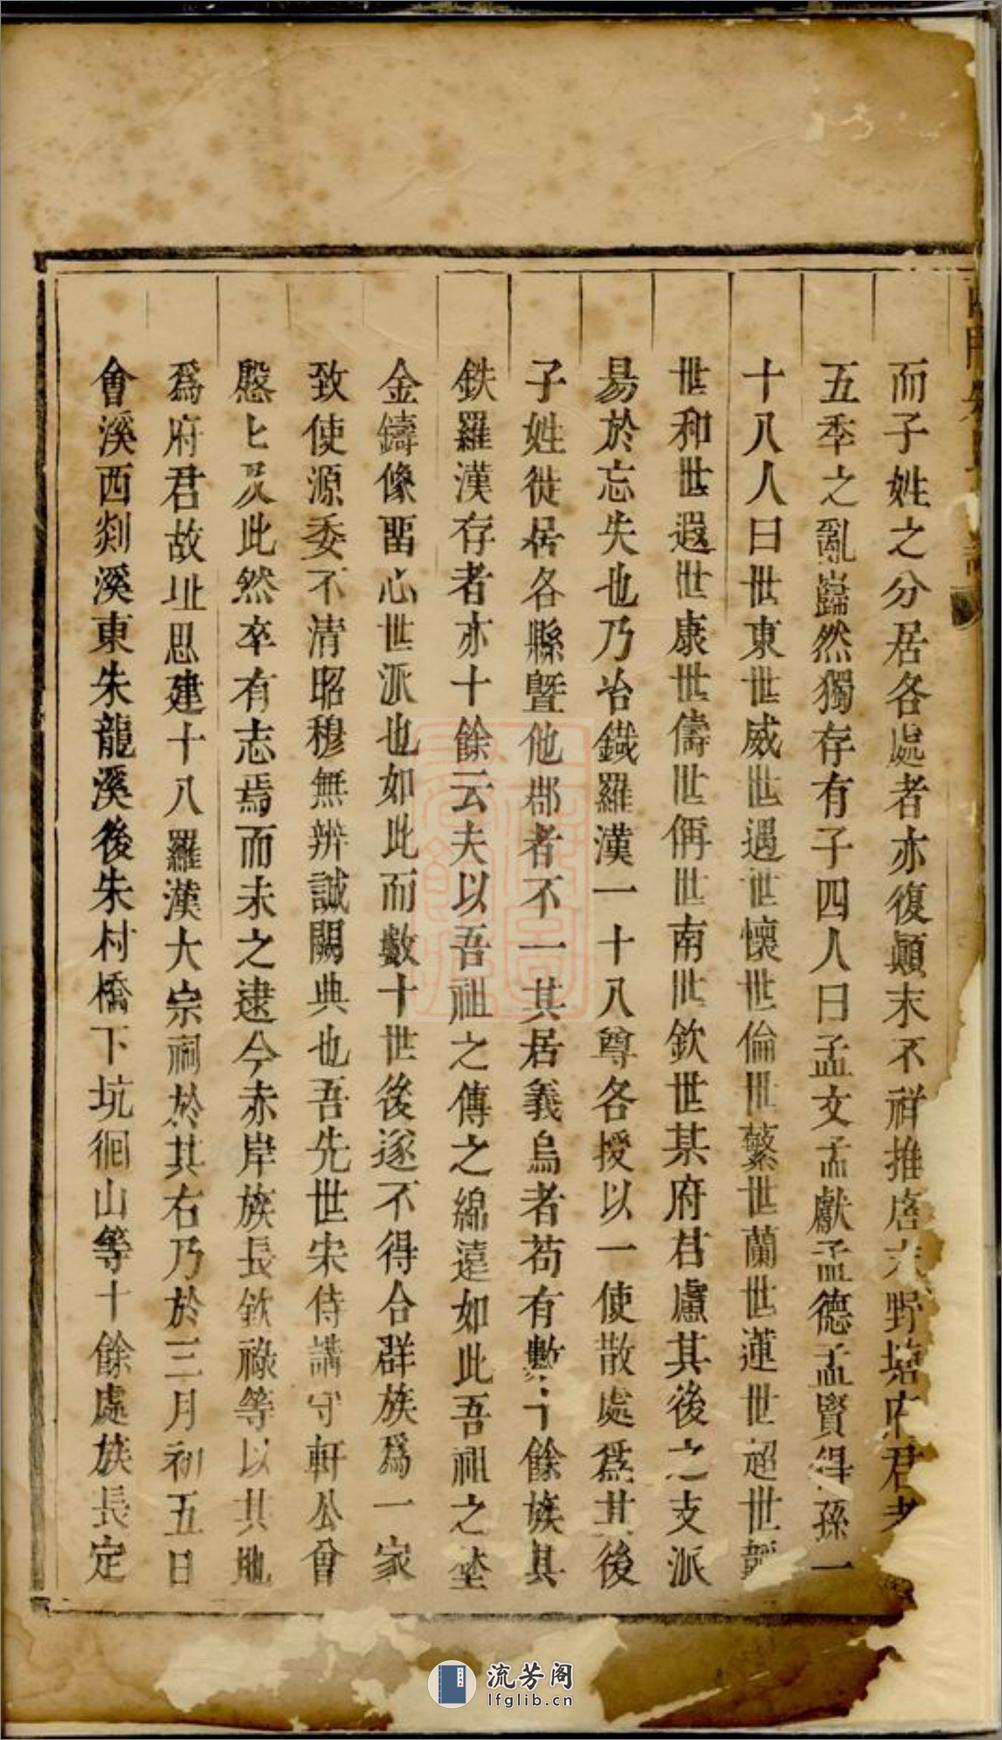 而子姓之分居各處者亦復顛末不祥推唐末野塘府君者
五季之亂巋然獨存有子四人曰孟文孟獻孟德孟賢得孫一
十八人曰世東世威世遇世懷世倫世繁世蘭世蓮世超世
世和世遐世康世儔世偁世南世欽世某府君慮其後之支派
易於忘失也乃冶鐡羅漢一十八尊各授以一使散處爲其後
子姓徙居各縣暨他郡者不一其居義烏者苟有數十餘族其
鉄羅漢存者亦十餘云夫以吾祖之傳之綿遠如此吾祖之
金鑄像畱心世派也如此而數十世後遂不得合群族爲一家
致使源委不清昭穆無辨誠闕典也吾先世宋侍講守軒公會
慇匕及此然卒有志焉而未之逮今赤岸族長欽祿等以其地
爲府君故址思建十八羅漢大宗祠於其右乃於三月初五日
會溪西剡溪東朱龍溪後朱村橋下坑徊山等十餘處族長定
流芳阁
lfglib.cn